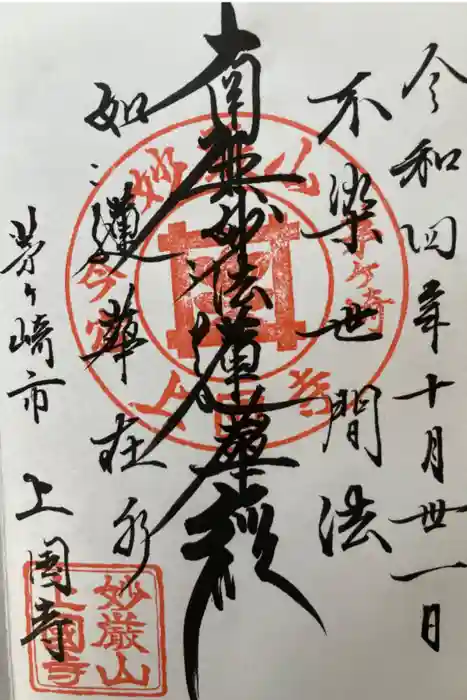 令和四年十月丗一日
不染世間法
南無妙法蓮華経
如蓮華在水
茅ヶ崎市 上国寺
妙厳山
茅ヶ崎
妙厳山
上國寺